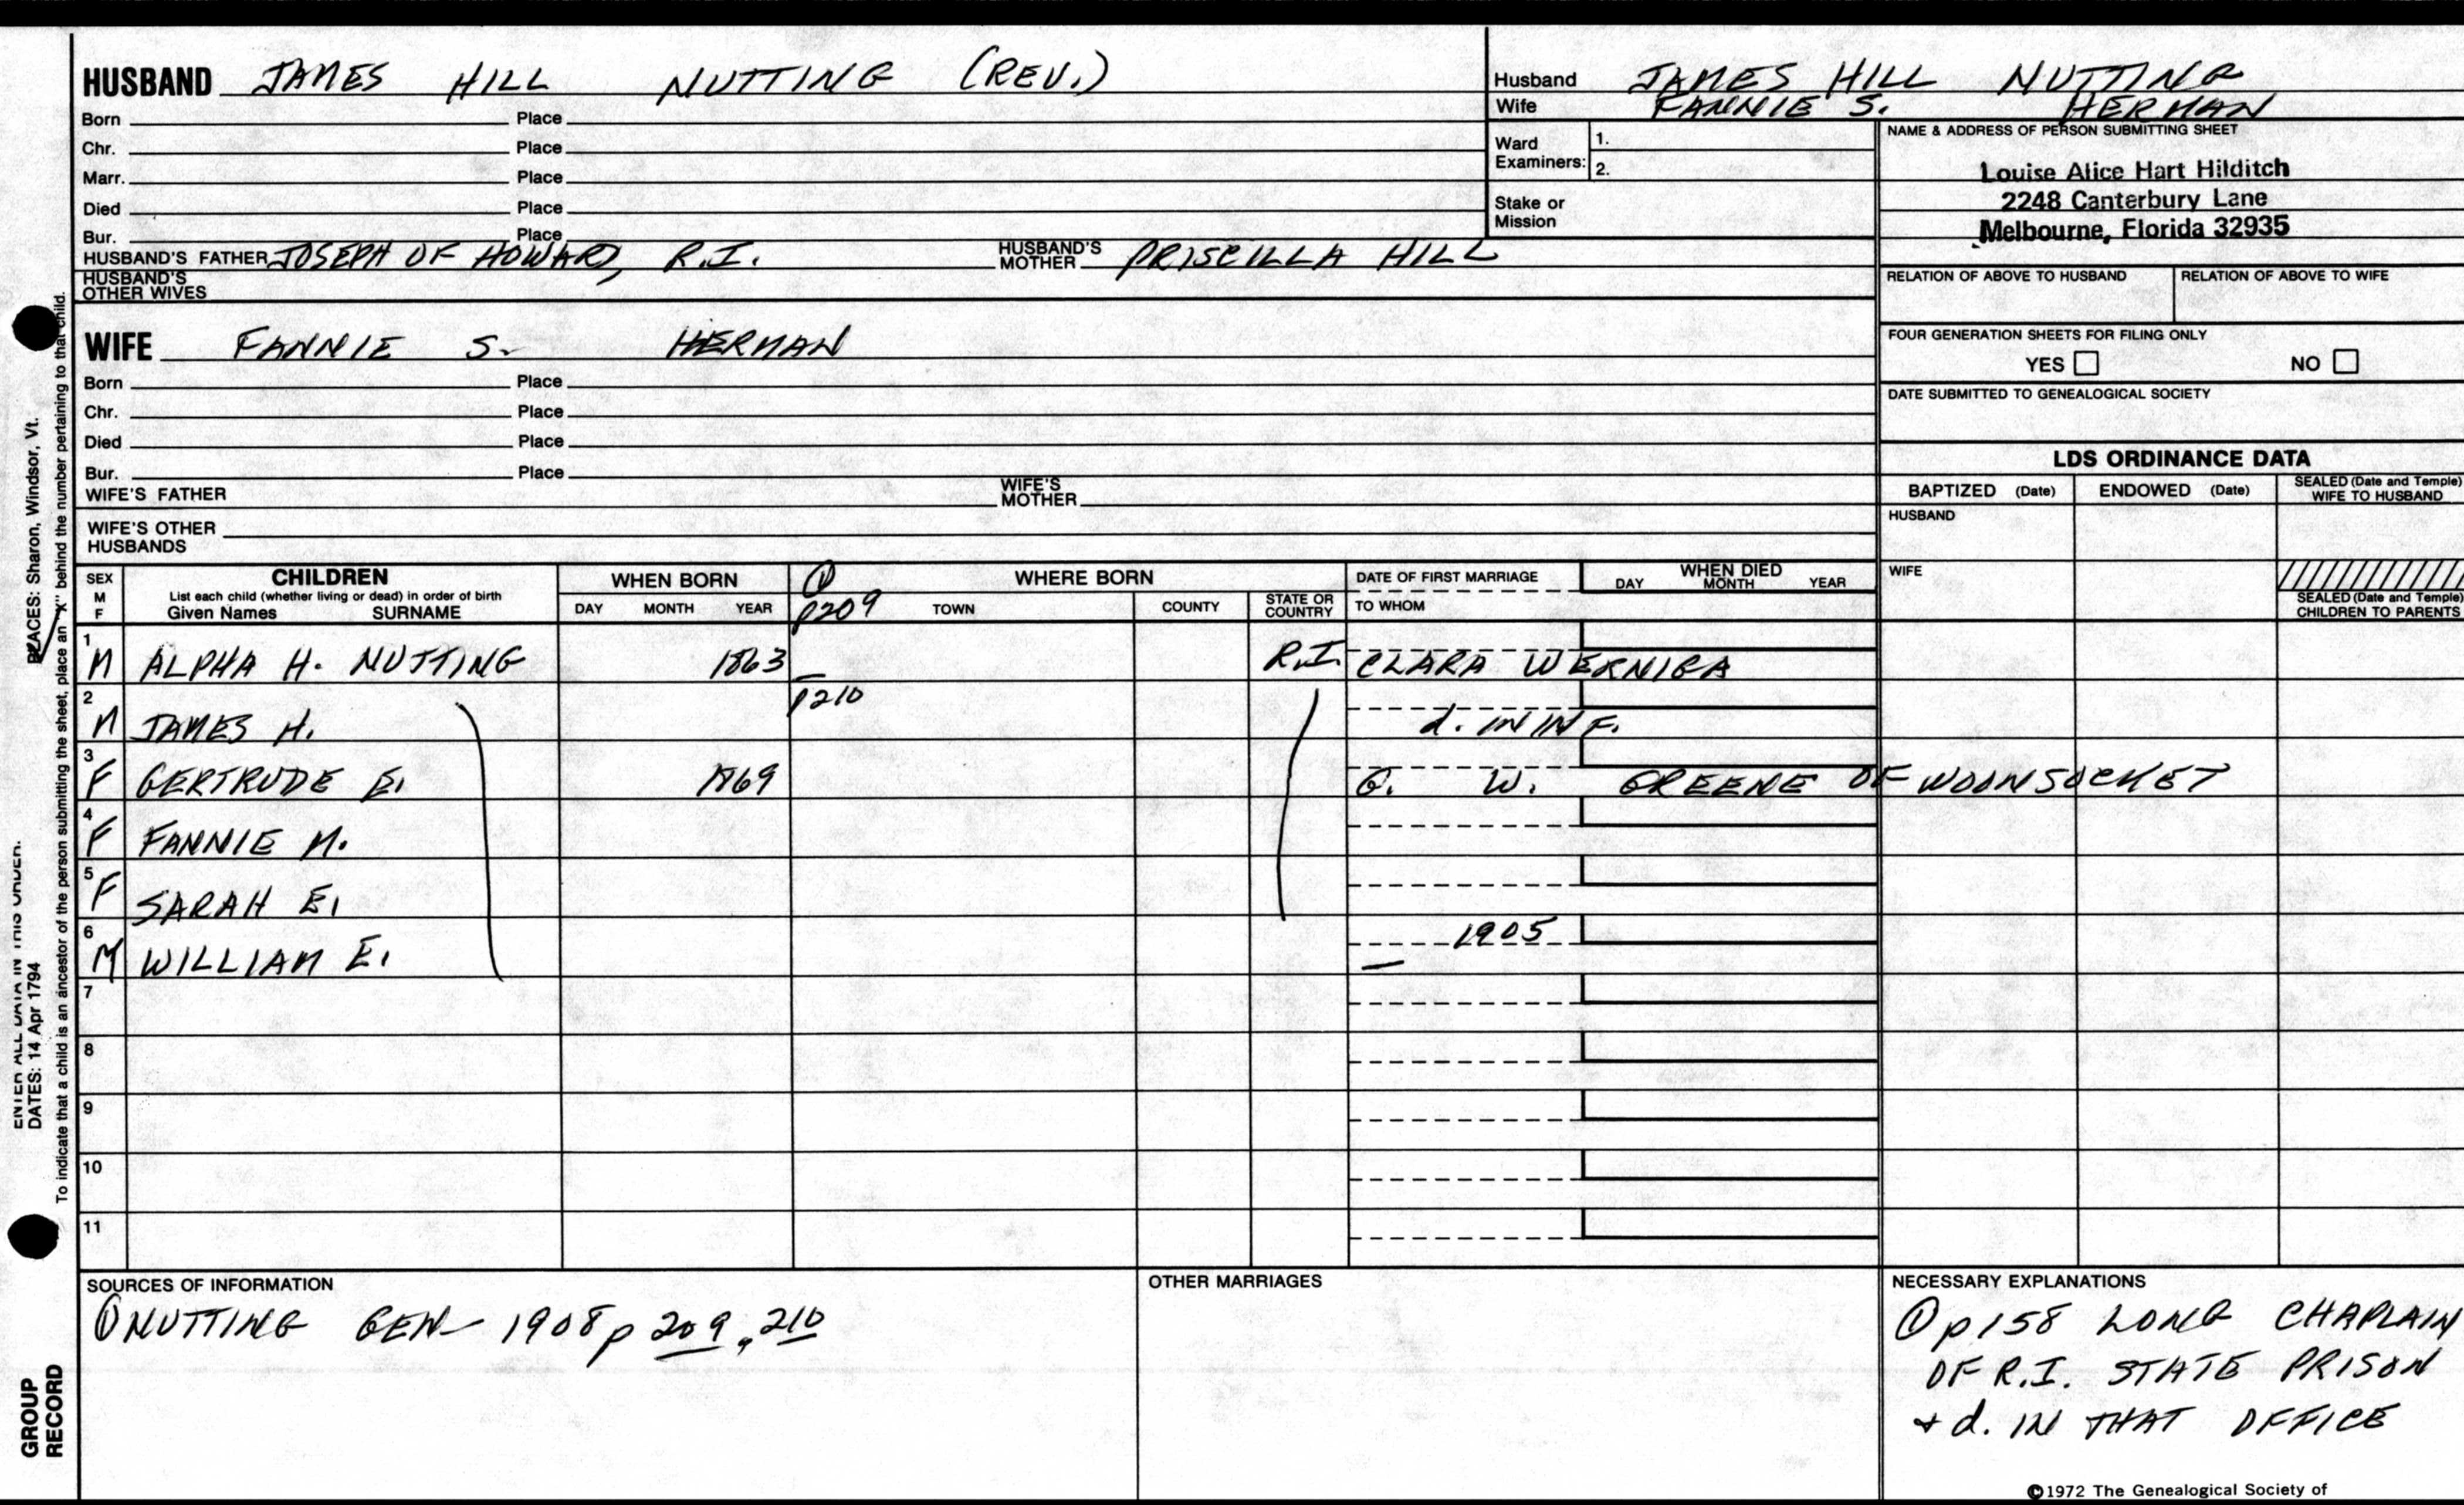 HUSBAND JAMES HILL NUTTING (REV.)
Born Place
Chr. Place
Marr. Place
Died Place
Bur. Place
HUSBAND'S FATHER JOSEPH OF HOWARD, R.I. HUSBAND'S MOTHER PRISCILLA HILL
HUSBAND'S OTHER WIVES
WIFE FANNIE S. HERMAN
Born Place
Chr. Place
Died Place
Bur. Place
WIFE'S FATHER WIFE'S MOTHER
WIFE'S OTHER HUSBANDS
Husband JAMES HILL NUTTING
Wife FANNIE S. HERMAN
Ward Examiners: 1.
2.
Stake or Mission
NAME & ADDRESS OF PERSON SUBMITTING SHEET
Louise Alice Hart Hilditch
2248 Canterbury Lane
Melbourne, Florida 32935
RELATION OF ABOVE TO HUSBAND RELATION OF ABOVE TO WIFE
FOUR GENERATION SHEETS FOR FILING ONLY
YES NO
DATE SUBMITTED TO GENEALOGICAL SOCIETY
LDS ORDINANCE DATA
BAPTIZED (Date) ENDOWED (Date) SEALED (Date and Temple) WIFE TO HUSBAND
HUSBAND
WIFE
SEALED (Date and Temple) CHILDREN TO PARENTS
SEX M F
CHILDREN
List each child (whether living or dead) in order of birth
Given Names SURNAME
WHEN BORN
DAY MONTH YEAR
① p209
WHERE BORN
TOWN COUNTY STATE OR COUNTRY
DATE OF FIRST MARRIAGE
TO WHOM
WHEN DIED
DAY MONTH YEAR
1 M ALPHA H. NUTTING 1863 R.I. CLARA
p210
2 M JAMES H. d. IN INF.
3 F GERTRUDE E. 1869 G. W. GREENE OF WOONSOCKET
4 F FANNIE M.
5 F SARAH E.
6 M WILLIAM E. 1905
7
8
9
10
11
SOURCES OF INFORMATION
① NUTTING GEN 1908 p 209, 210
OTHER MARRIAGES
NECESSARY EXPLANATIONS
① p158 LONG CHAPLAIN
OF R.I. STATE PRISON
+ d. IN THAT OFFICE
©1972 The Genealogical Society of
ENTER ALL DATA IN THIS ORDER.
DATES: 14 Apr 1794
PLACES: Sharon, Windsor, Vt.
To indicate that a child is an ancestor of the person submitting the sheet, place an "X" behind the number pertaining to that child.
GROUP
RECORD